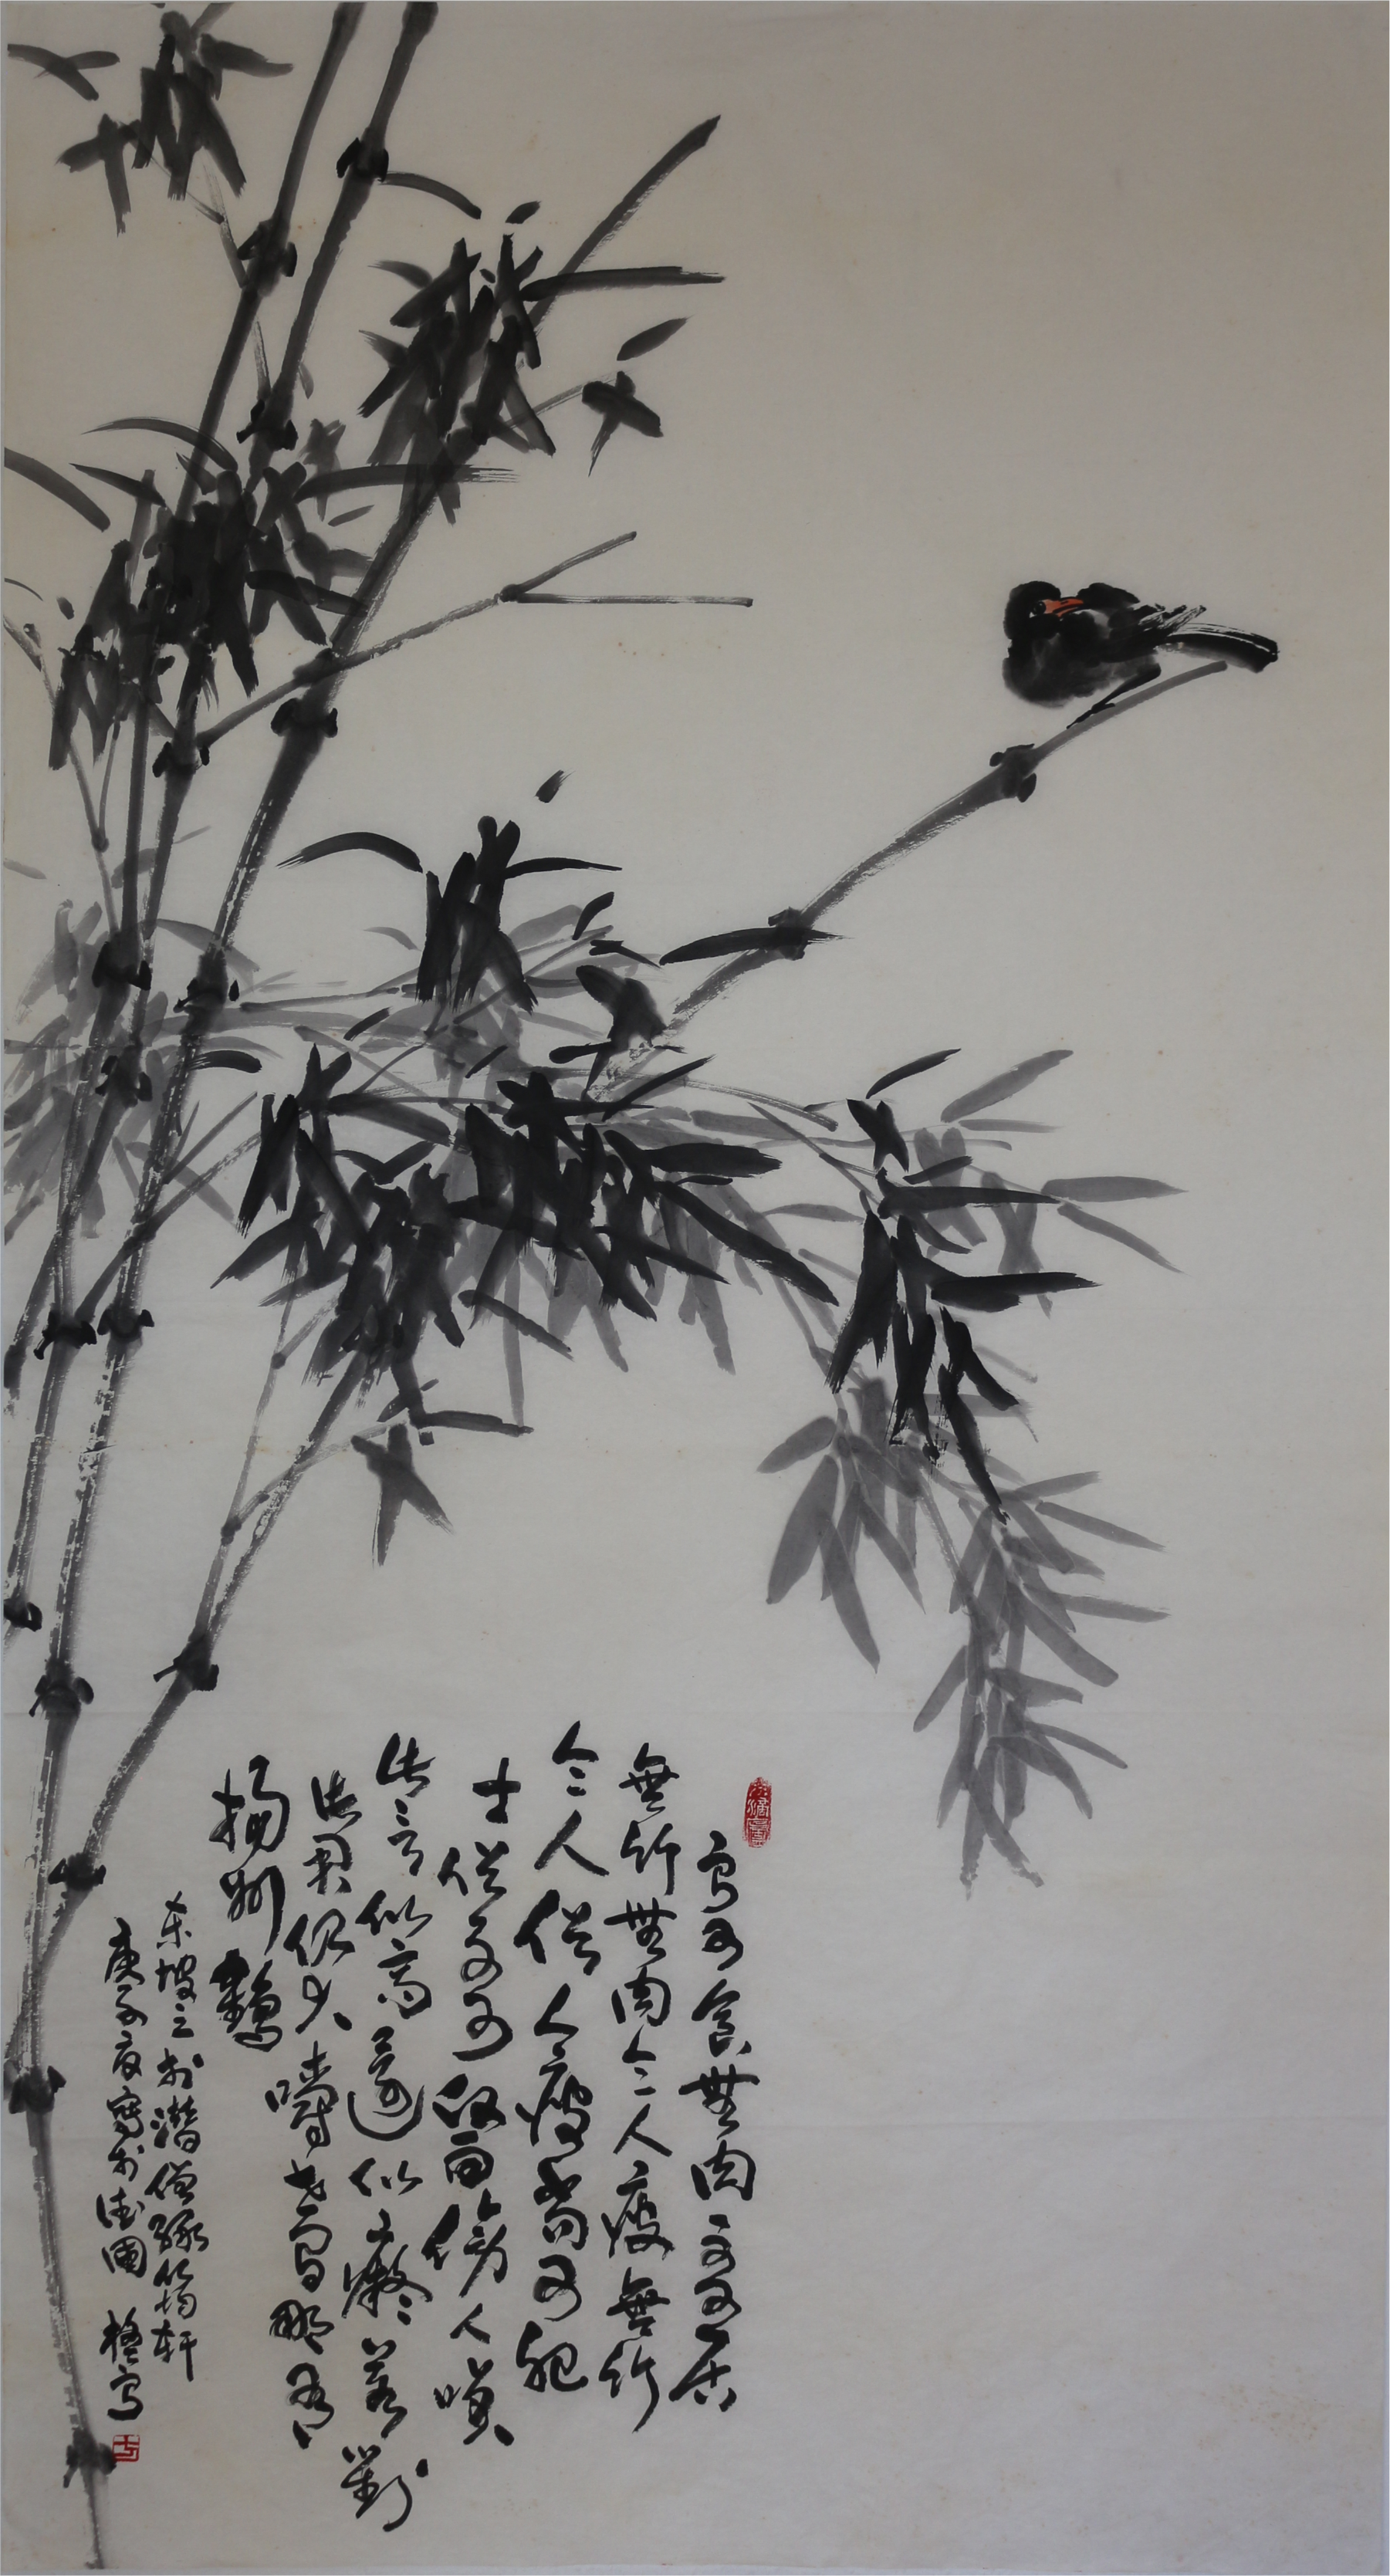 寧可食無肉不可居
無竹無肉令人瘦無竹
令人俗人瘦尚可肥
士俗不可醫傍人咲
此言似高還似癡若對
此君仍大嚼世間那有
揚州鶴
東坡之於潛僧綠筠轩
庚子寫於法國